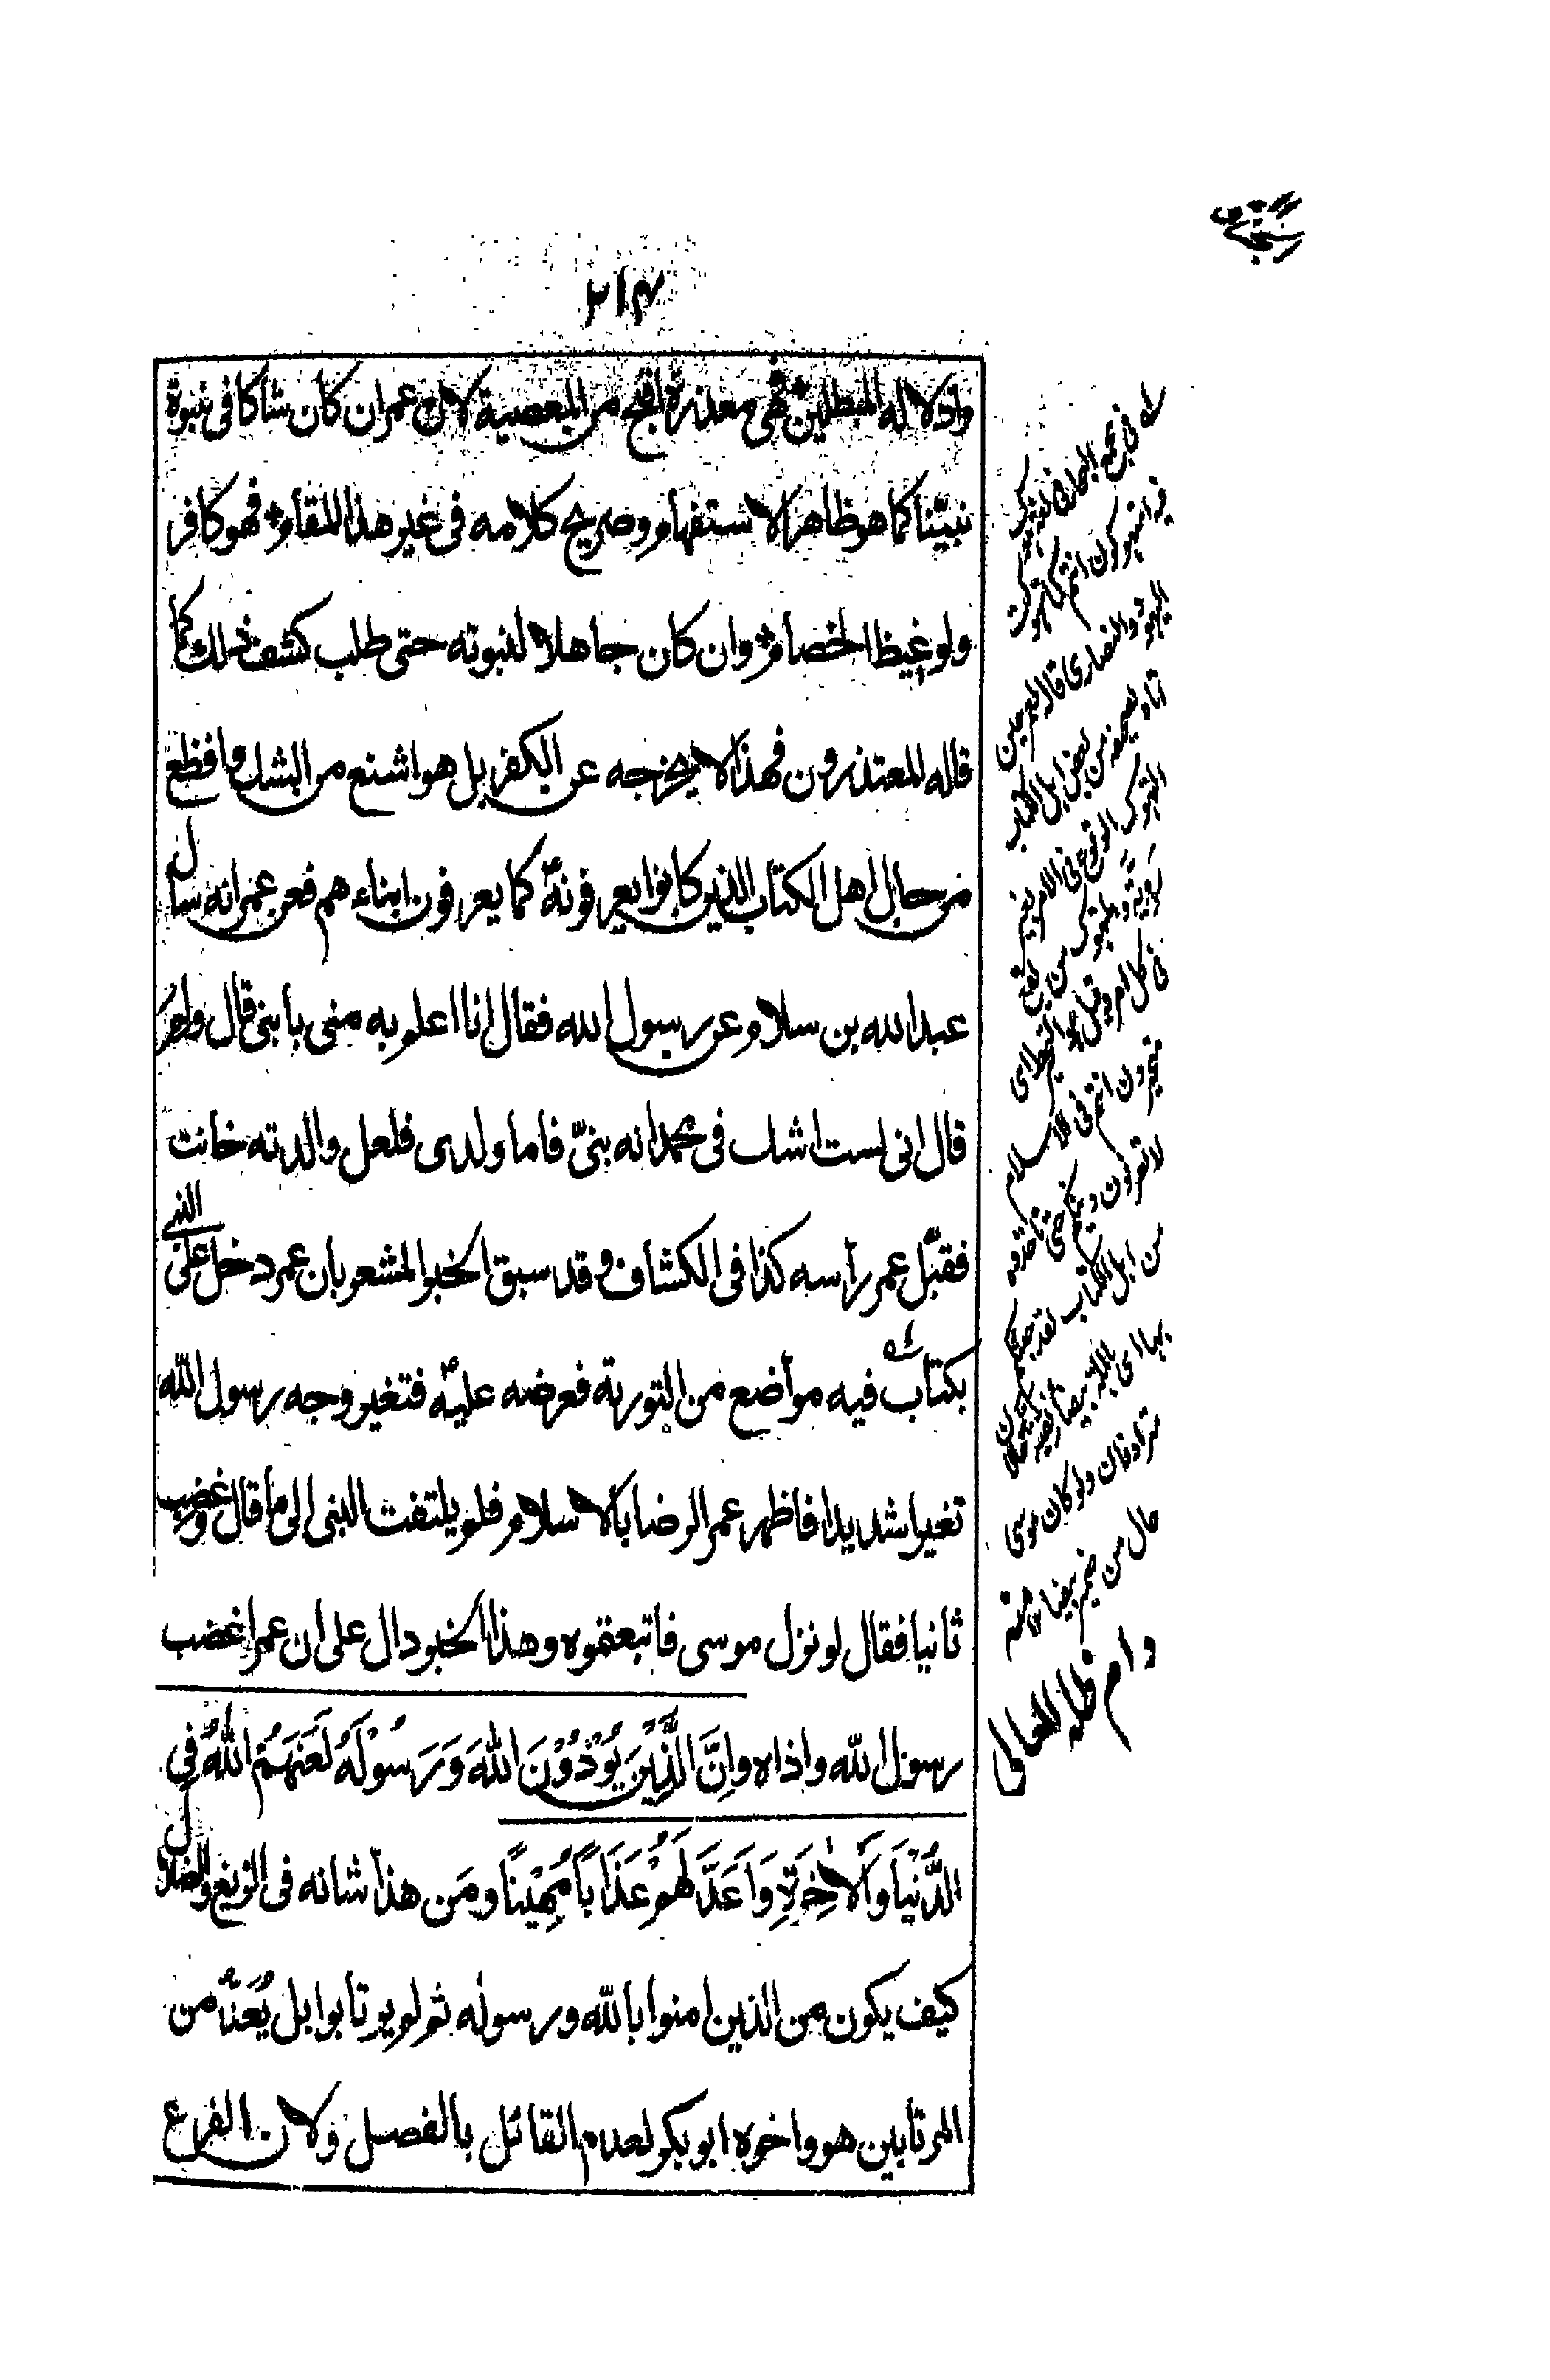 ٢١٤
واذلاله المبطلين فهى معذرة اقبح من المعصية لان عمر ان كان شاكا فى نبوة
نبيّنا كما هو ظاهر الاستفهام وصريح كلامه فى غير هذا المقام فهو كافر
ولو غيظ الخصام وان كان جاهلا لنبوته حتى طلب كشف ذلك كما
قاله المعتذرون فهذا لا يخرجه عن الكفر بل هو اشنع من الشك وافظع
من حال اهل الكتاب الذين كانوا يعرفونه كما يعرفون ابناءهم فعن عمر انه سال
عبد الله بن سلام عن رسول الله فقال انا اعلم به منى بأبنى قال ولم
قال انى لست اشك فى محمد انه نبىّ فاما ولدى فلعل والدته خانت
فقبّل عمر رأسه كذا فى الكشاف وقد سبق الخبر المشعر بان عمر دخل على النبى
بكتاب فيه مواضع من التورية فعرضه عليه فتغير وجه رسول الله
تغيرا شديدا فاظهر عمر الرضا بالاسلام فلم يلتفت النبى الى ما قال وغضب
ثانيا فقال لو نزل موسى فاتبعتموه وهذا الخبر دال على ان عمر اغضب
رسول الله واذاه وَاِنَّ الَّذِيْنَ يُوْذُوْنَ اللهَ وَرَسُوْلَهُ لَعَنَهُمُ اللهُ فِي
الدُّنْيَا وَالْاٰخِرَةِ وَاَعَدَّ لَهُمْ عَذَابًا مُهِيْنًا ومَن هذا شانه فى الزيغ والضلال
كيف يكون من الذين امنوا بالله ورسوله ثم لم يرتابوا بل يُعَدُّ من
المرتابين هو واخوه ابو بكر لعدم القائل بالفصل ولان الفرع
له فى مجمع البحار فى
فيه امتهوكون انتم كما تهوكت
اليهود والنصارى قاله لعمر حين
اتاه بصحيفة من بعض اهل الكتاب
التهوك الوقوع فى الامر بغير
روية والمتهوك من يقع
فى كل امر وقيل هو التحير اى
متحيرون انتم فى الاسلام
لا تعرفون دينكم حتى تاخذوه
من اهل الكتاب لقد جئتكم
بها اى بالملة بيضاء نقية
مترادفان ولو كان موسى
حال من ضمير بيضاء منه
دام ظله العالى